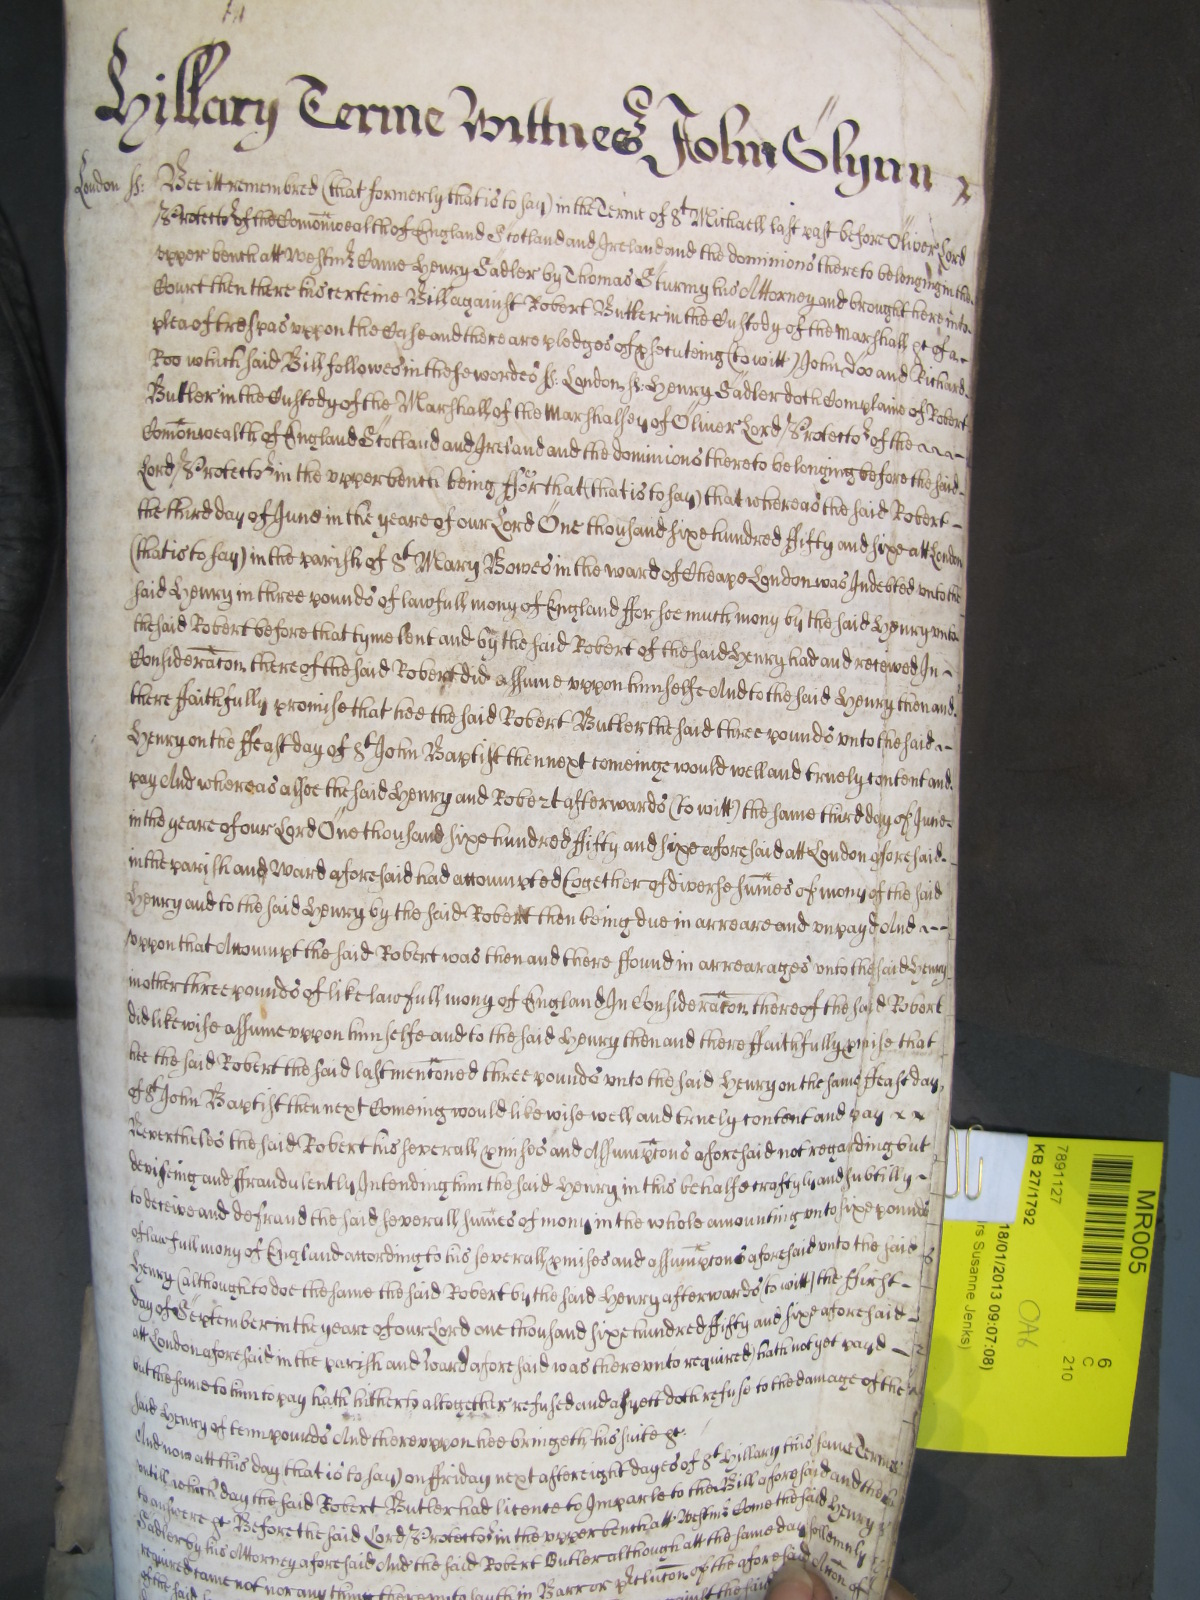 Hillary Terme Wittnes John Glynn
London ss: Bee itt remembred (that formerly that is to say) in the Terme of St Michaell last past before Oliver Lord
Protector of the Comonwealth of England Scotland and Ireland and the dominions thereto belonging in the
upper bench att Westmr Came Henry Sadler by Thomas Sturmy his Attorney and brought here into
Court then there his certeine Bill against Robert Butler in the Custody of the Marshall &c of a
plea of trespas uppon the Case and there are pledges of psecuteing (to witt) John Doo and Richard
Roo which said Bill followes in these wordes ss: London ss: Henry Sadler doth Complaine of Robert
Butler in the Custody of the Marshall of the Marshalsey of Oliver Lord Protector of the
Comonwealth of England Scotland and Ireland and the dominions thereto belonging before the said
Lord Protector in the upper bench being ffor that (that is to say) that whereas the said Robert
the third day of June in the yeare of our Lord One thousand sixe hundred ffifty and sixe att London
(that is to say) in the parish of St Mary Bowes in the ward of Cheape London was Indebted unto the
said Henry in three pounds of lawfull mony of England ffor soe much mony by the said Henry unto
the said Robert before that tyme lent and by the said Robert of the said Henry had and received In
Consideracon thereof the said Robert did assume uppon himselfe And to the said Henry then and
there ffaithfully promise that hee the said Robert Butler the said three pounds unto the said
Henry on the ffeast day of St John Baptist then next comeinge would well and truely content and
pay And whereas alsoe the said Henry and Robert afterwards (to witt) the same third day of June
in the yeare of our Lord One thousand sixe hundred ffifty and sixe aforesaid att London aforesaid
in the parish and Ward aforesaid had accompted together of diverse sumes of mony of the said
Henry and to the said Henry by the said Robert then being due in arreare and unpayd And
uppon that Accompt the said Robert was then and there ffound in arrearages unto the said Henry
in other three pounds of like lawfull mony of England In Consideracon thereof the said Robert
did likewise assume uppon himselfe and to the said Henry then and there ffaithfully pmise that
hee the said Robert the said last mentoned three pounds unto the said Henry on the same ffeast day
of St John Baptist then next Comeing would likewise well and truely content and pay
Nevertheles the said Robert his severall pmises and Assumptons aforesaid not regarding but
deviseing and ffraudulently Intending him the said Henry in this behalfe craftyly and subtilly
to deceive and defraud the said severall sumes of mony in the whole amounting unto sixe pounds
of lawfull mony of England according to his severall pmises and assumptons aforesaid unto the said
Henry (although to doe the same the said Robert by the said Henry afterwards (to witt) the ffirst
day of September in the yeare of our Lord one thousand sixe hundred ffifty and sixe aforesaid
att London aforesaid in the parish and Ward aforesaid was thereunto required) hath not yet payd
but the same to him to pay hath hitherto altogether refused and as yett doth refuse to the damage of the
said Henry of tenn pounds And thereuppon hee bringeth his suite &c.
And now att this day that is to say) on ffriday next after eight dayes of St Hillary this same Terme
untill which day the said Robert Butler had licence to Imparle to the Bill aforesaid and then
to answere &c Before the said Lord Protector in the upper bench att Westmr Came the said Henry
Sadler by his Attorney aforesaid And the said Robert Butler although att the same day sollemnly
required came not nor any thing thereunto saith in Barr or pclucon of the aforesaid Accon of
of the said
MR005
6
C
210
7891127
KB 27/1792
OA6
18/01/2013 09:07:08)
rs Susanne Jenks)